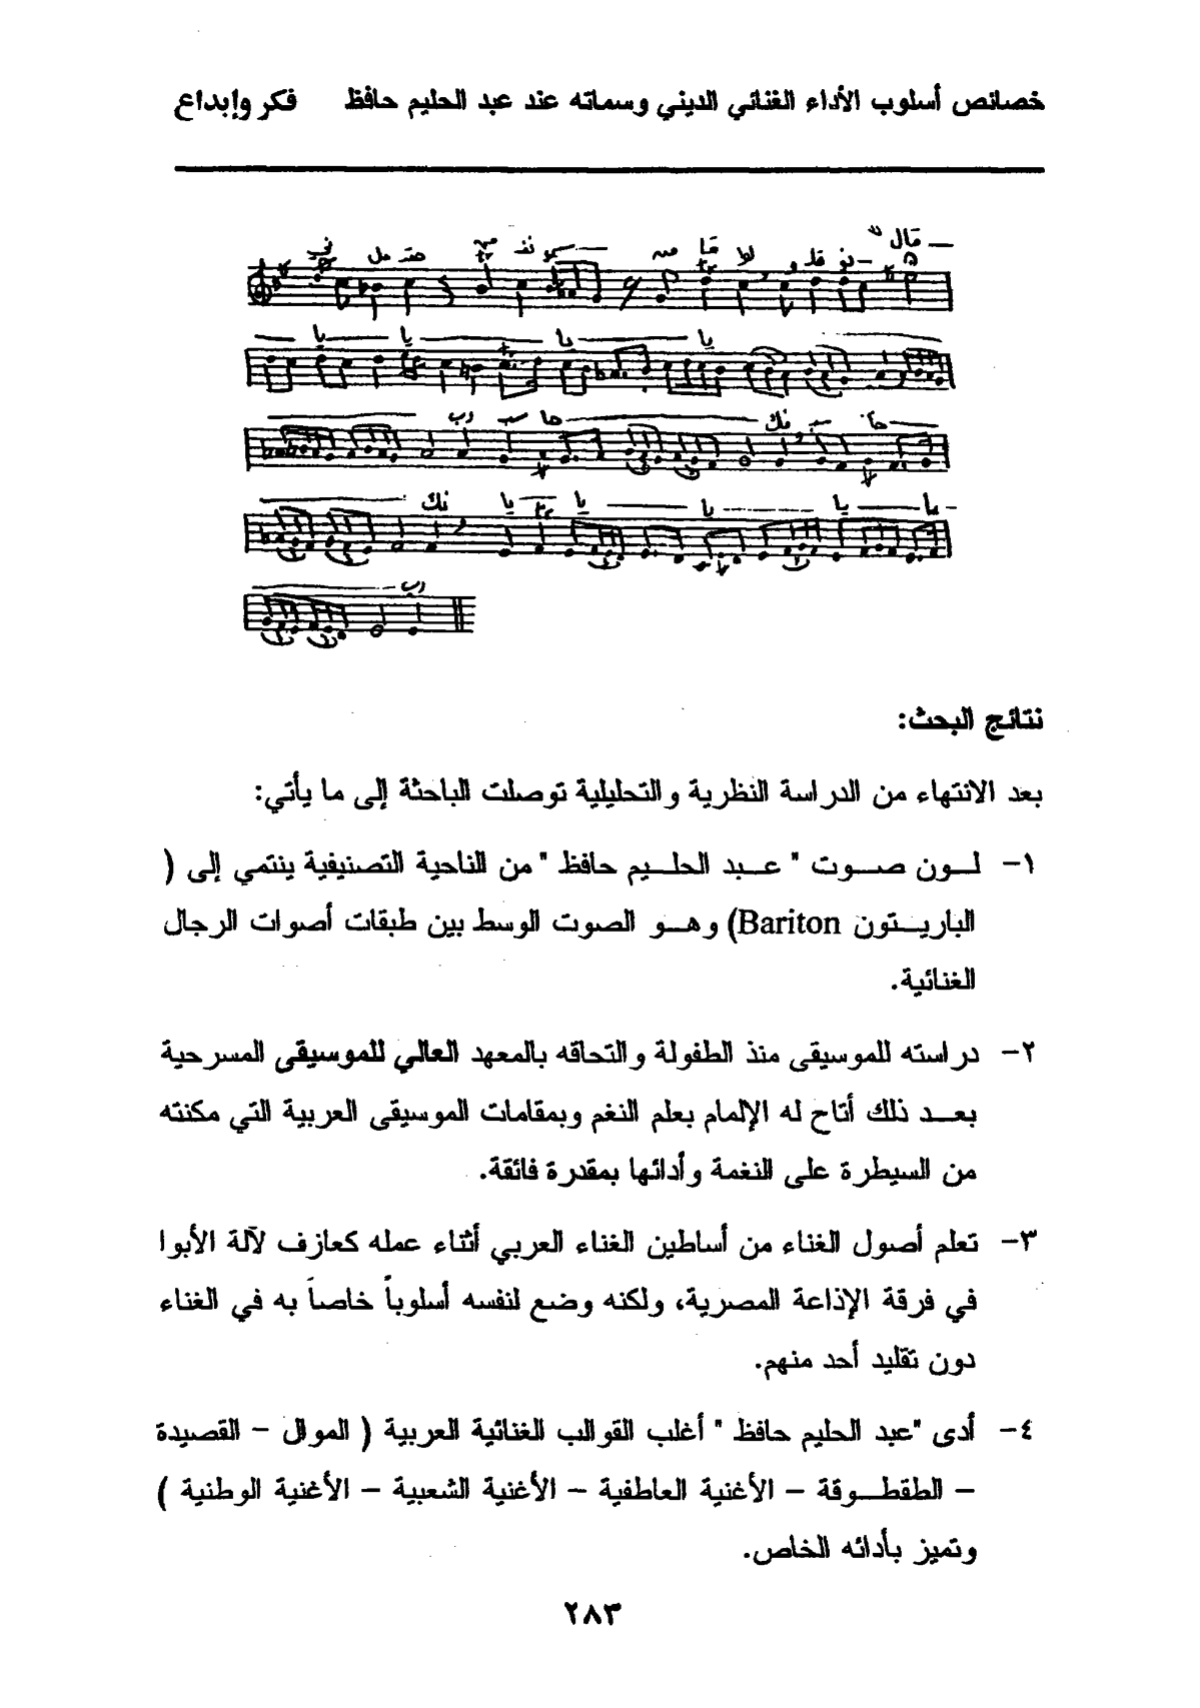 خصائص أسلوب الأداء الغنائي الديني وسماته عند عبد الحليم حافظ فكر وإبداع
نتائج البحث:
بعد الانتهاء من الدراسة النظرية والتحليلية توصلت الباحثة إلى ما يأتي:
١- لـون صـوت " عـبد الحلـيم حافظ " من الناحية التصنيفية ينتمي إلى (
الباريـتون Bariton) وهـو الصوت الوسط بين طبقات أصوات الرجال
الغنائية.
٢- دراسته للموسيقى منذ الطفولة والتحاقه بالمعهد العالي للموسيقى المسرحية
بعـد ذلك أتاح له الإلمام بعلم النغم وبمقامات الموسيقى العربية التي مكنته
من السيطرة على النغمة وأدائها بمقدرة فائقة.
٣- تعلم أصول الغناء من أساطين الغناء العربي أثناء عمله كعازف لآلة الأبوا
في فرقة الإذاعة المصرية، ولكنه وضع لنفسه أسلوباً خاصاً به في الغناء
دون تقليد أحد منهم.
٤- أدى "عبد الحليم حافظ " أغلب القوالب الغنائية العربية ( الموال – القصيدة
– الطقطـوقة – الأغنية العاطفية – الأغنية الشعبية – الأغنية الوطنية )
وتميز بأدائه الخاص.
٢٨٣